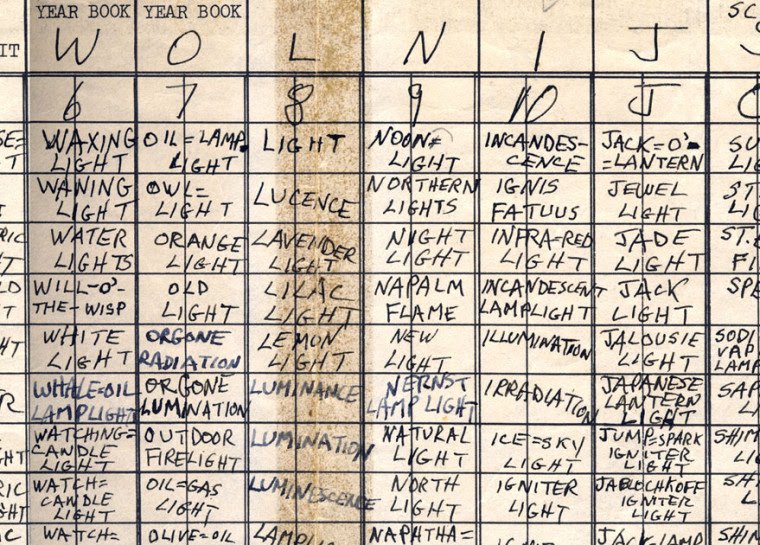 YEAR BOOK YEAR BOOK SC
IT W O L N I J
6 7 8 9 10 J
SE= WAXING OIL=LAMP LIGHT NOON= INCANDES- JACK=O'- SU
T LIGHT LIGHT LIGHT CENCE =LANTERN LIG
WANING OWL= LUCENCE NORTHERN IGNIS JEWEL ST
LIGHT LIGHT LIGHTS FATUUS LIGHT LIG
RIC WATER ORANGE LAVENDER NIGHT INFRA=RED JADE ST.E
T LIGHTS LIGHT LIGHT LIGHT LIGHT LIGHT FI
LD WILL-O'- OLD LILAC NAPALM INCANDESCENT JACK SPE
T THE-WISP LIGHT LIGHT FLAME LAMPLIGHT LIGHT
HT WHITE ORGONE LEMON NEW ILLUMINATION JALOUSIE SODI
LIGHT RADIATION LIGHT LIGHT LIGHT VAP
LAMP
R WHALE=OIL ORGONE LUMINANCE NERNST IRRADIATION JAPANESE SAP
LAMPLIGHT LUMINATION LAMP LIGHT LANTERN LI
LIGHT
WATCHING= OUTDOOR LUMINATION NATURAL ICE=SKY JUMP=SPARK SHIM
GHT CANDLE FIRELIGHT LIGHT LIGHT IGNITER LI
LIGHT LIGHT
RIC WATCH= OIL=GAS LUMINESCENCE NORTH IGNITER JABLOCHKOFF SHI
CANDLE LIGHT LIGHT LIGHT IGNITER L
GHT LIGHT LIGHT
C WATCH= OLIVE=OIL LAMPLI NAPHTHA= JACKLAMP SHIN